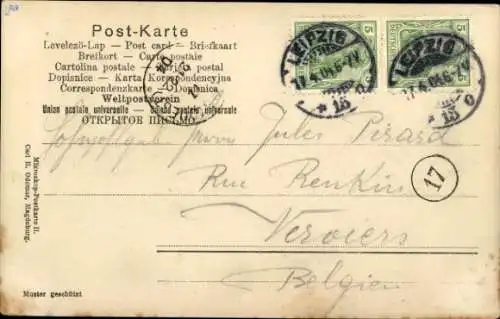 Post-Karte
Levelező-Lap — Post card — Briefkaart
Brefkort — Carte postale
Cartolina postale — postal
Dopisnice — Karta Korrespondencyjna
Correspondenzkarte — Dopisnica
Weltpostverein
Union postale universelle — postale universale
ОТКРЫТОЕ ПИСЬМО.
LEIPZIG
17.4.04.6-7V
* 13 o
LEIPZIG
17.4.04.6-7V
* 13 o
5
5
Jules Pirard
Rue Renkin
17
Verviers
Belgien
Mikroskop-Postkarte II.
Carl R. Odemar, Magdeburg.
Muster geschützt